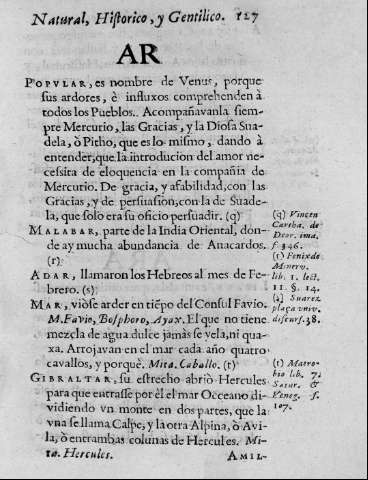 Natural, Historico, y Gentilico. 127
AR
POPVLAR, es nombre de Venus, porque
sus ardores, è influxos comprehenden à
todos los Pueblos.. Acompañavanla siem-
pre Mercurio, las Gracias, y la Diosa Sua-
dela, ò Pitho, que es lo mismo, dando à
entender, que la introducion del amor ne-
cessita de eloquencia en la compañia de
Mercurio. De gracia, y afabilidad, con las
Gracias, y de persuasion, con la de Suade-
la, que solo era su oficio persuadir. (q)
MALABAR, parte de la India Oriental, don-
de ay mucha abundancia de Anacardos.
(r)
ADAR, llamaron los Hebreos al mes de Fe-
brero. (s)
MAR, viòse arder en tiẽpo del Consul Favio.
M. Favio, Bosphoro, Ayax. El que no tiene
mezcla de agua dulce jamàs se vela, ni qua-
xa. Arrojavan en el mar cada año quatro
cavallos, y porquè. Mira. Caballo. (t)
GIBRALTAR, su estrecho abriò Hercules
para que entrasse por èl el mar Occeano di-
vidiendo vn monte en dos partes, que la
vna se llama Calpe, y la otra Alpina, ò Avi-
la, ò entrambas colunas de Hercules. Mi-
ra. Hercules.
AMIL-
(q) Vincen
Cartha. de
Deor. ima.
f 346.
(r) Fenix de
Minerv.
lib. 1. lect.
11. §. 14.
(s) Suarez
plaça univ.
discurs. 38.
(t) Matro-
bio lib. 7.
Satur. &
Veneg. f.
107.